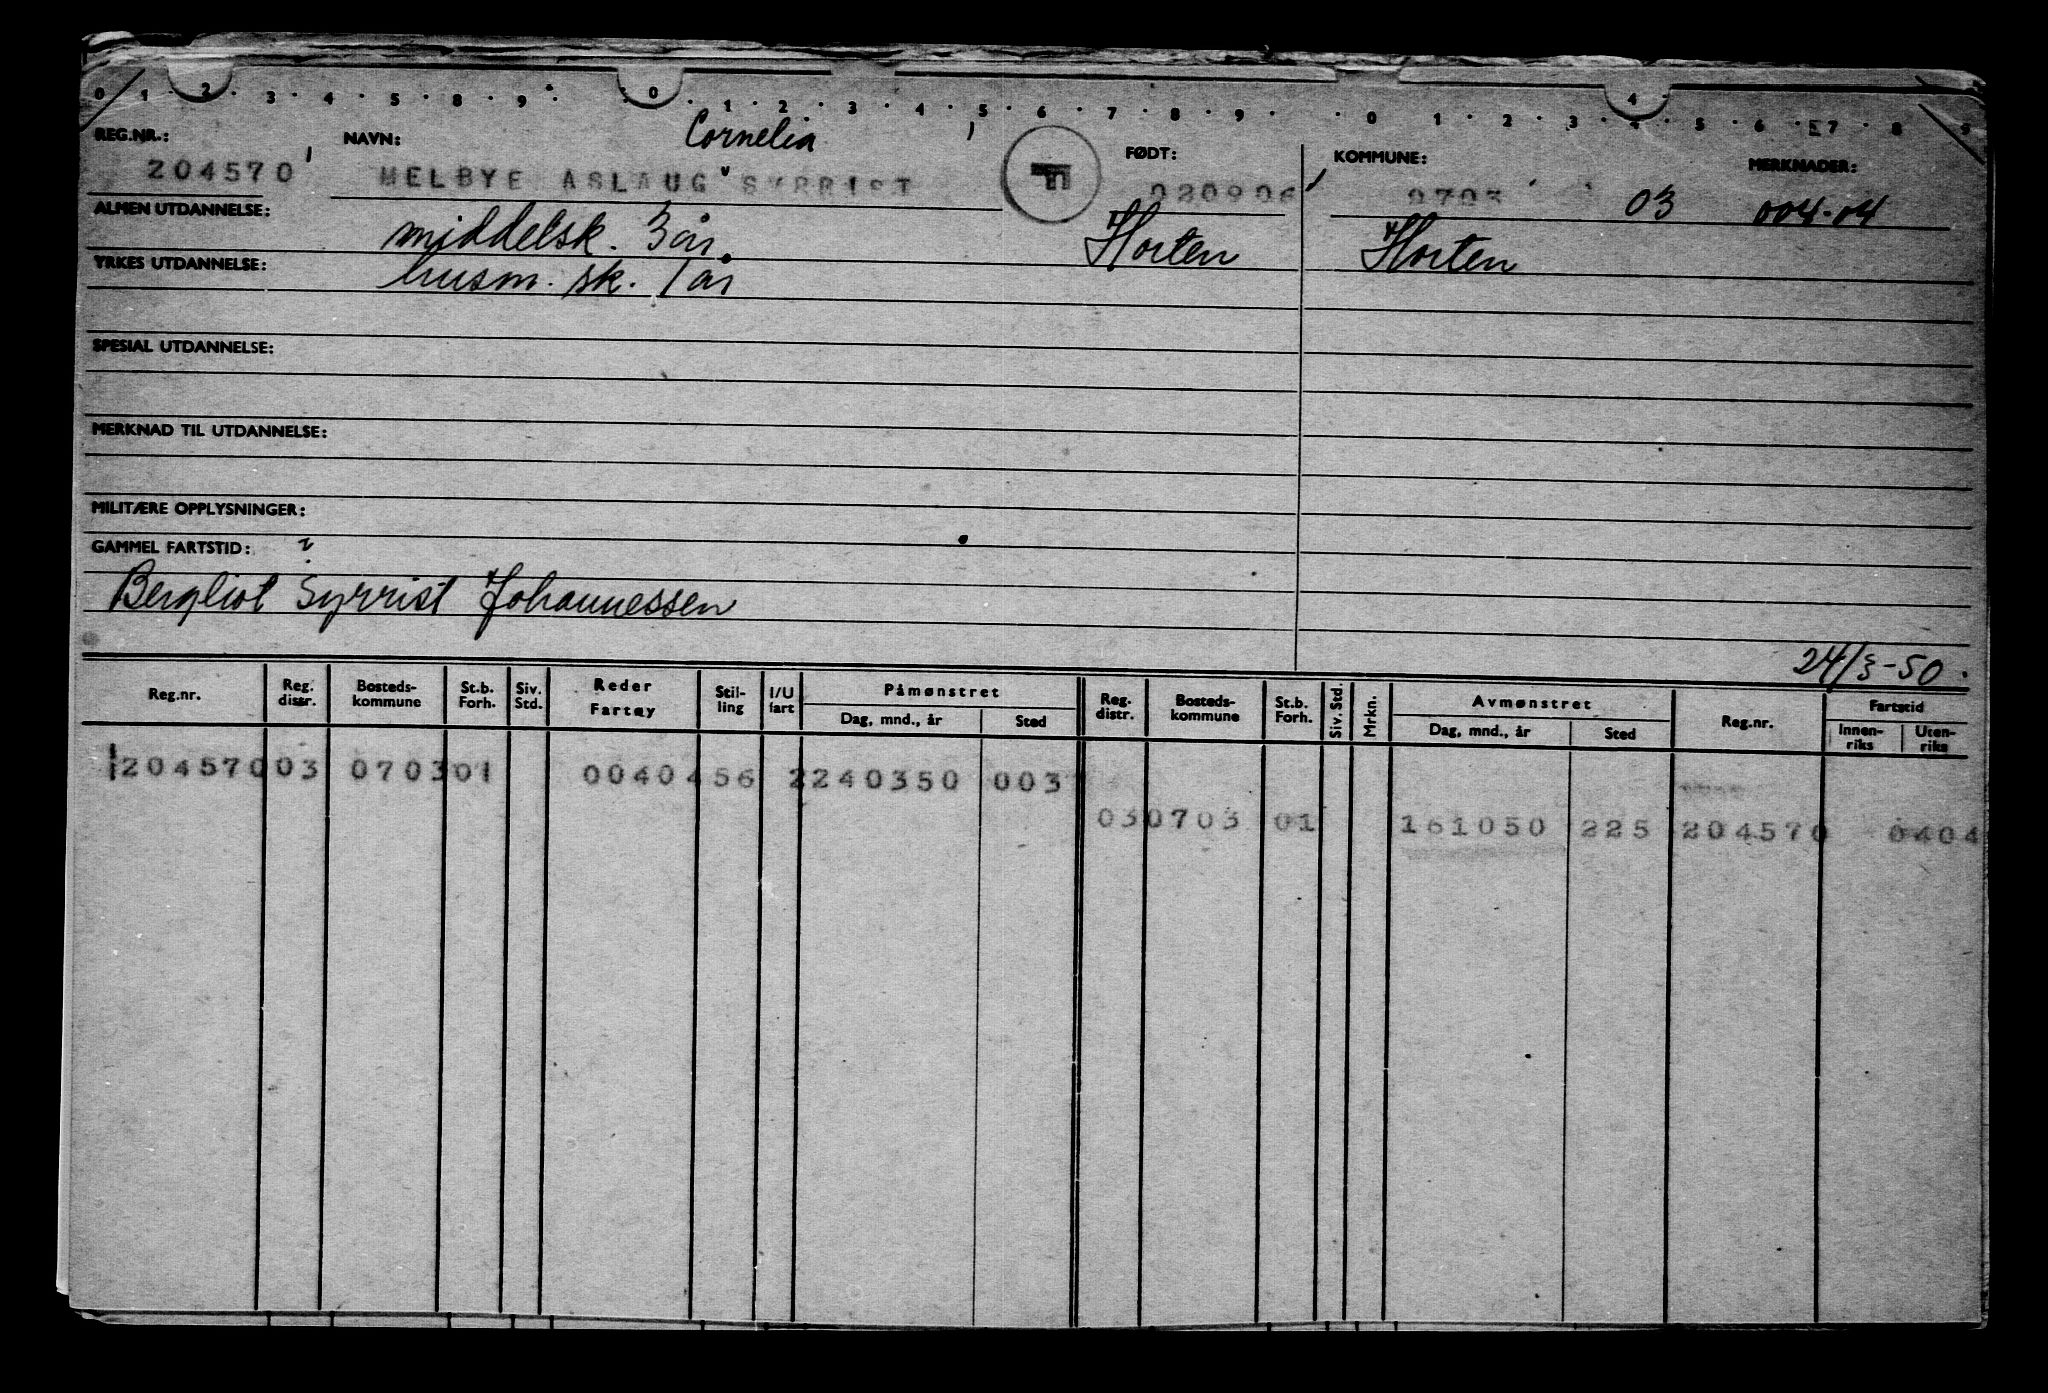 0 1 2 3 4 5 8 9 0 1 2 3 4 5 6 7 8 9 0 1 2 3 4 5 6 7 8 9
REG.NR.: NAVN: Cornelia FØDT: KOMMUNE: MERKNADER:
204570 MELBYE ASLAUG SYRRIST 020906 0703 03 004-04
ALMEN UTDANNELSE: middelsk. 3 år. Horten Horten
YRKES UTDANNELSE: husm. sk. 1 år
SPESIAL UTDANNELSE:
MERKNAD TIL UTDANNELSE:
MILITÆRE OPPLYSNINGER:
GAMMEL FARTSTID:
Bergliot Syrrist Johannessen
24/3-50.
Reg.nr. Reg. distr. Bosteds-kommune St.b. Forh. Siv. Std. Reder Fartøy Stil-ling I/U fart Påmønstret Dag, mnd., år Sted Reg. distr. Bosteds-kommune St.b. Forh. Siv. Std. Mrkn. Avmønstret Dag, mnd., år Sted Reg.nr. Fartstid Innen-riks Uten-riks
204570 03 0703 01 00404 56 2 240350 003
03 0703 01 161050 225 204570 0404